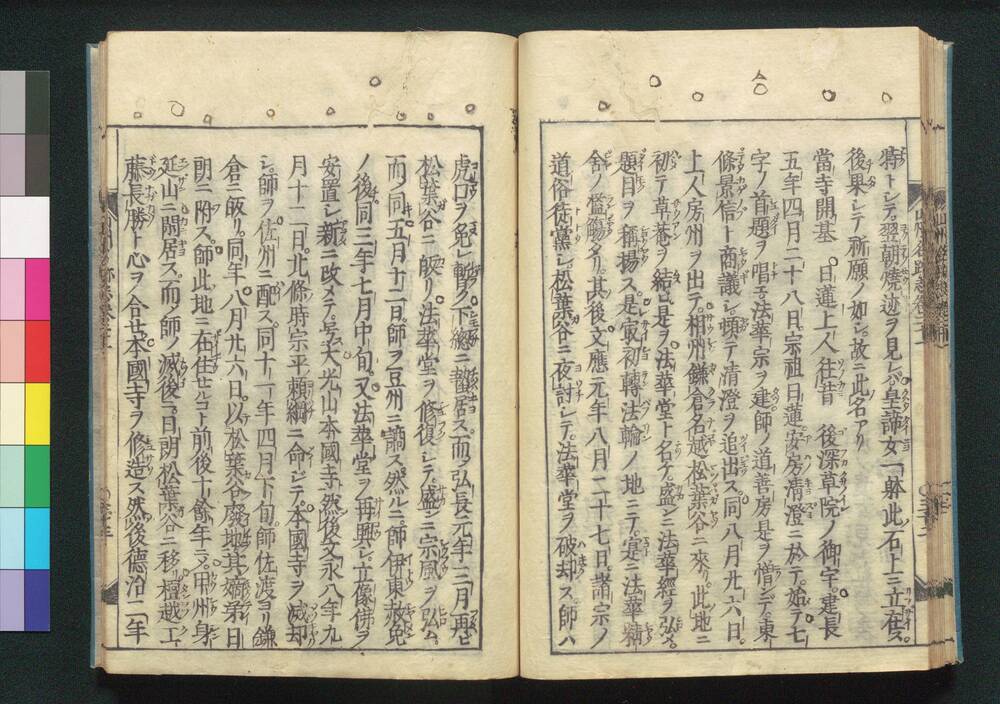 特トシテ翌朝焼迹ヲ見レバ皇諦女一躰此石上ニ立在ス。
後果シテ祈願ノ如シ故ニ此名アリ
當寺開基　日蓮上人往昔　後深草院ノ御宇。建長
五年四月二十八日。宗祖日蓮。安房清澄ニ於テ。始テ七
字ノ首題ヲ唱エ。法華宗ヲ建。師ノ道善房是ヲ憎シデ。東
條景信ト商議シ。頓テ清澄ヲ追出ス。同八月廾六日。
上人房州ヲ出テ。相州鎌倉名越松葉谷ニ來リ。此地ニ
初テ草菴ヲ結。是ヲ法華堂ト名ケ。盛ニ法華經ヲ弘。
題目ヲ稱揚ス。是寂初轉法輪ノ地ニテ。寔ニ法華精
舍ノ濫觴タリ。其後文應元年八月二十七日。諸宗ノ
道俗徒黨シ。松葉谷ニ夜討シテ。法華堂ヲ破却ス師ハ
虎口ヲ免レ。暫ク下總ニ蟄居ス。而ノ弘長元年三月再ビ
松葉谷ニ皈リ。法華堂ヲ修復シテ。盛ニ宗風ヲ弘ム。
而ノ同五月十二日師ヲ豆州ニ謫ス。然ルニ師伊東赦免
ノ後同三年七月中旬。又法華堂ヲ再興シ。立像佛ヲ
安置シ。新ニ改メテ。号大光山本國寺。然後文永八年九
月十二日。北條時宗平頼綱ニ命ジテ。本國寺ヲ滅却
シ。師ヲ佐州ニ配ス。同十一年四月下旬。師佐渡ヨリ鎌
倉ニ皈リ。同年八月廾六日。以松葉谷廢地。其嫡弟日
朗ニ附ス。師此地ニ在住セルコト前後十餘年ニノ。甲州身
延山ニ閑居ス。而ノ師ノ滅後。日朗松葉谷ニ移。檀越工
藤長勝ト心ヲ合セ。本國寺ヲ修造ス。然後德治二年